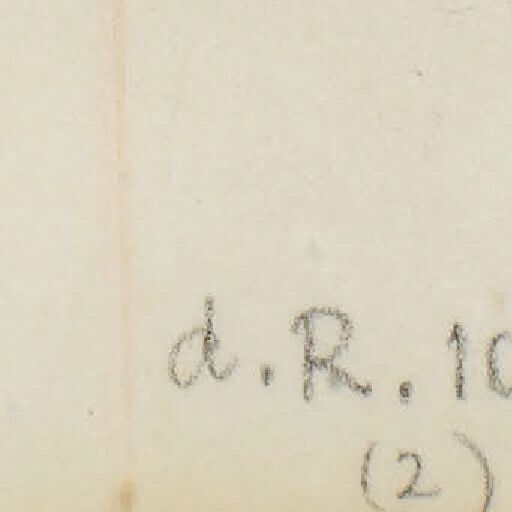 d.R.10
(2)